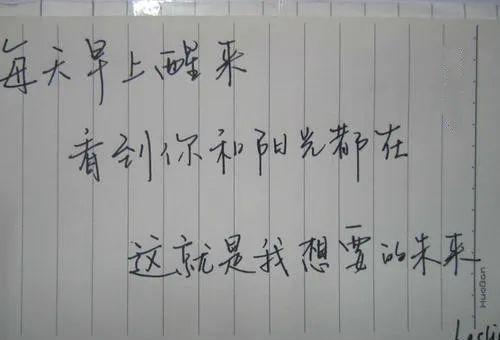 每天早上醒来
看到你和阳光都在
这就是我想要的未来
HuoGan